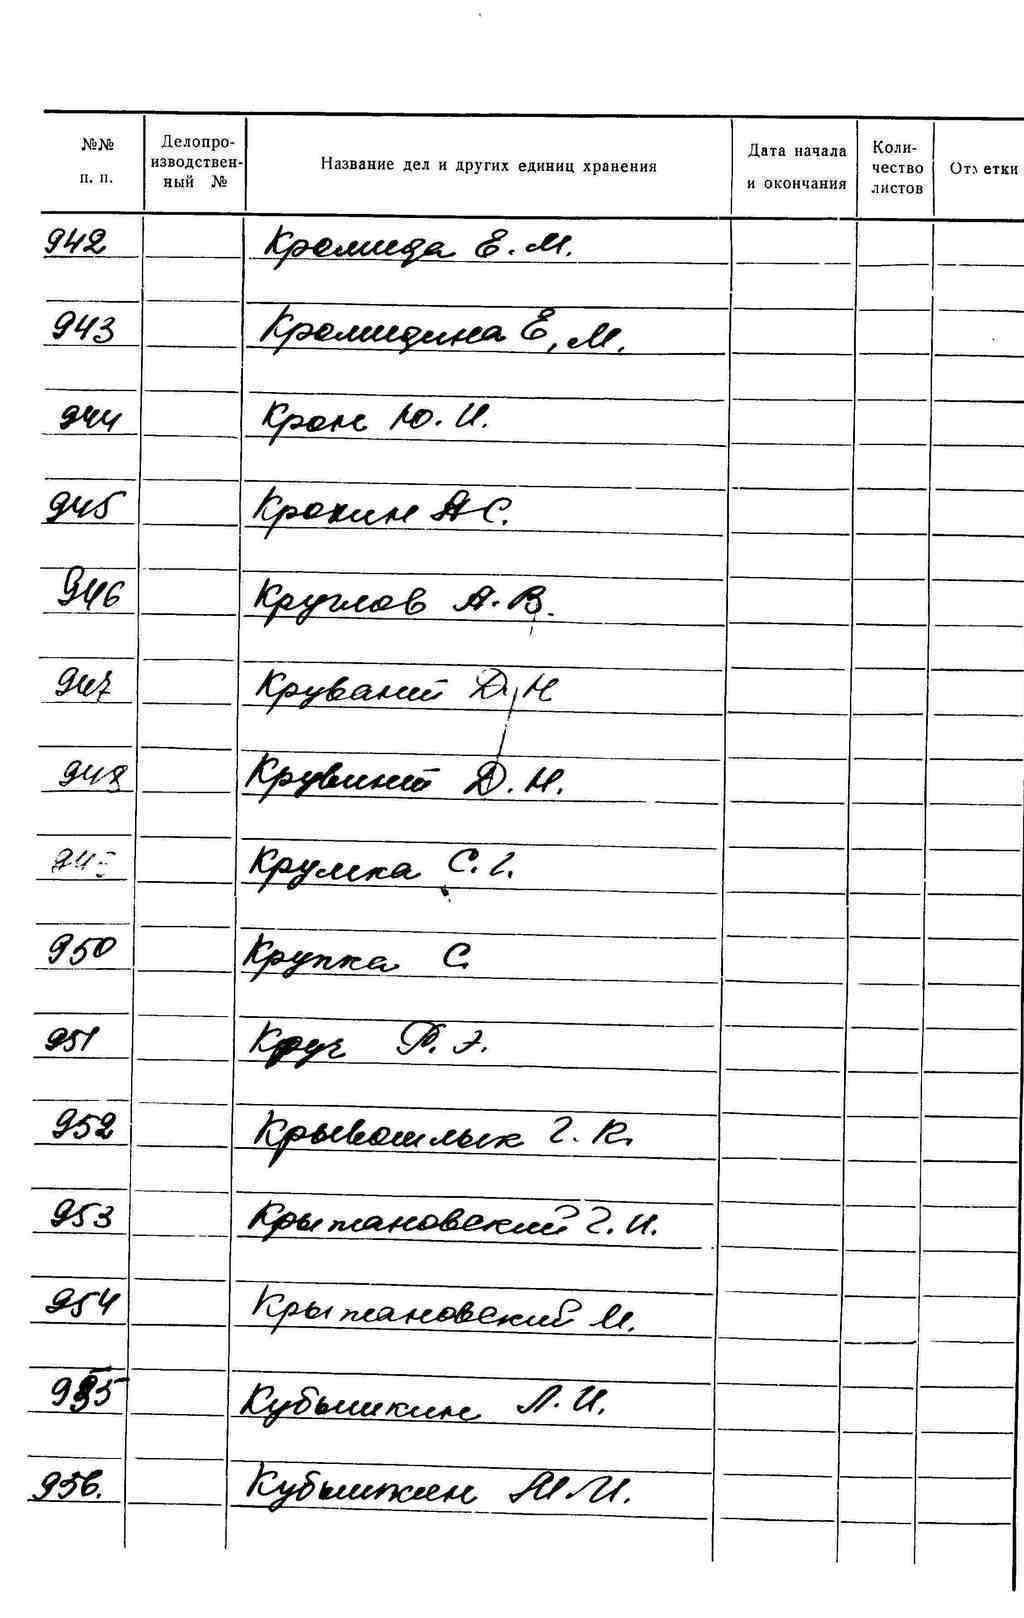 №№ п. п. Делопро-изводствен-ный № Название дел и других единиц хранения Дата начала и окончания Коли-чество листов От етки
942 Кромида Е. М.
943 Кромидина Е. М.
944 Крон Ю. И.
945 Кропин А С.
946 Круглов А. В.
947 Круваний Д. Н
948 Крувиний Д. Н.
Крумка С. Г.
950 Крупка С.
951 Круг Р. Э.
952 Крывошлык Г. К.
953 Крыжановский Г. И.
954 Крыжановский М.
955 Кубышкин Л. И.
956. Кубышкин М. И.